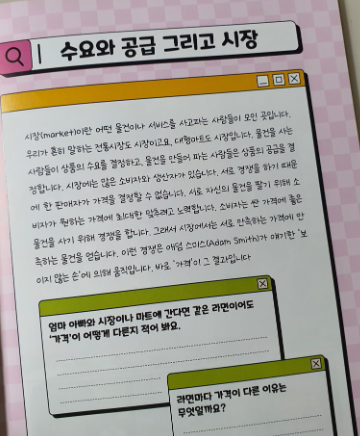 수요와 공급 그리고 시장
시장(market)이란 어떤 물건이나 서비스를 사고파는 사람들이 모인 곳입니다.
우리가 흔히 말하는 전통시장도 시장이고요, 대형마트도 시장입니다. 물건을 사는
사람들이 상품의 수요를 결정하고, 물건을 만들어 파는 사람들은 상품의 공급을 결
정합니다. 시장에는 많은 소비자와 생산자가 있습니다. 서로 경쟁을 하기 때문
에 한 판매자가 가격을 결정할 수 없습니다. 서로 자신의 물건을 팔기 위해 소
비자가 원하는 가격에 최대한 맞추려고 노력합니다. 소비자는 싼 가격에 좋은
물건을 사기 위해 경쟁을 합니다. 그래서 시장에서는 서로 만족하는 가격에 만
족하는 물건을 얻습니다. 이런 경쟁은 애덤 스미스(Adam Smith)가 얘기한 '보
이지 않는 손'에 의해 움직입니다. 바로 '가격'이 그 결과입니다
엄마 아빠와 시장이나 마트에 간다면 같은 라면이어도
'가격'이 어떻게 다른지 적어 봐요.
라면마다 가격이 다른 이유는
무엇일까요?